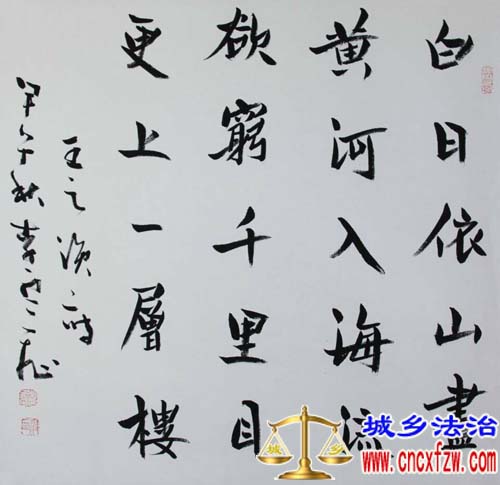 白日依山盡
黄河入海流
欲窮千里目
更上一層樓
王之涣诗
甲午秋李
城乡法治
www.cncxfzw.com